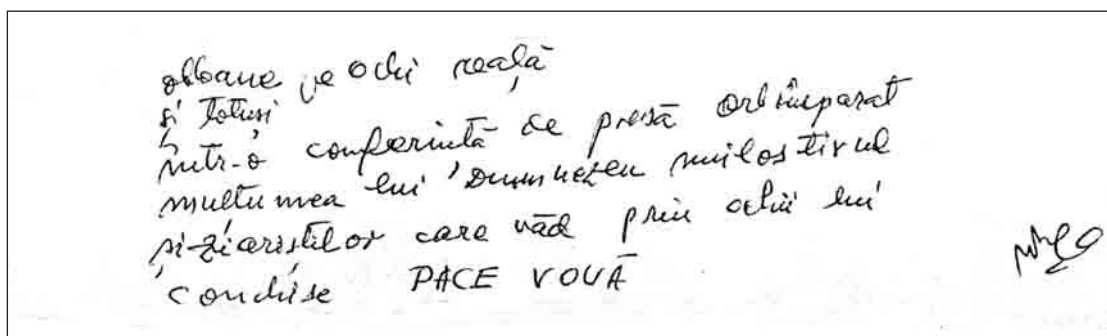 obloane pe ochi ceață
și totuși
într-o conferință de presă orb împărat
mulțumea lui Dumnezeu milostivul
și ziariștilor care văd prin ochii lui
conchise PACE VOUĂ